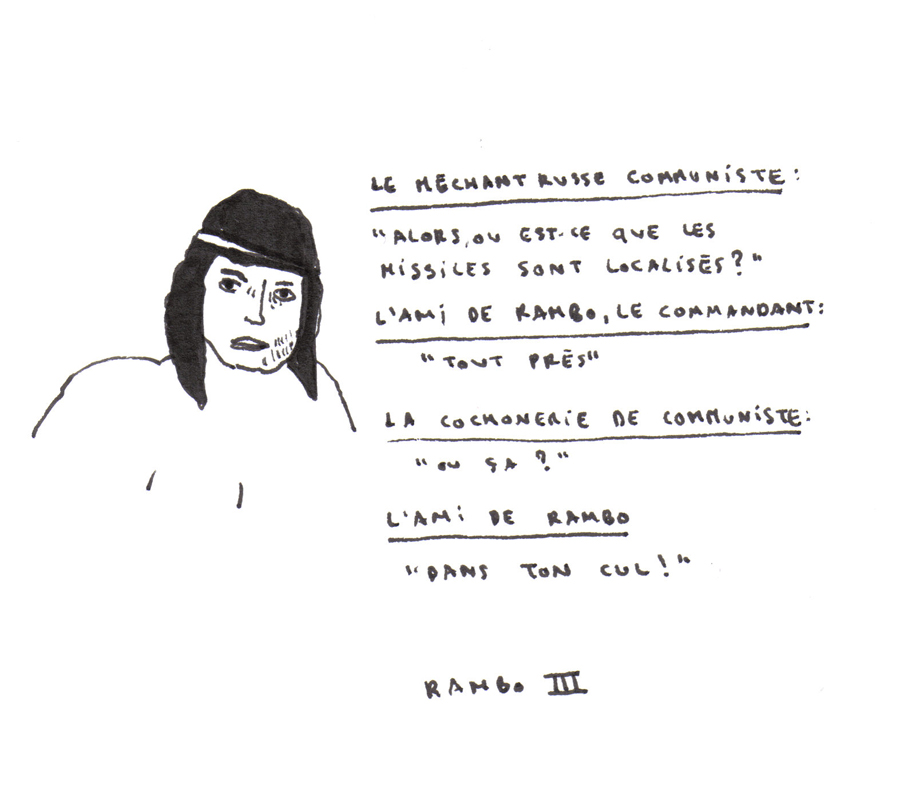 LE MÉCHANT RUSSE COMMUNISTE:
"ALORS, OU EST-CE QUE LES
MISSILES SONT LOCALISÉS?"
L'AMI DE RAMBO, LE COMMANDANT:
"TOUT PRÉS"
LA COCHONERIE DE COMMUNISTE:
"OU ÇA ?"
L'AMI DE RAMBO
"DANS TON CUL!"
RAMBO III